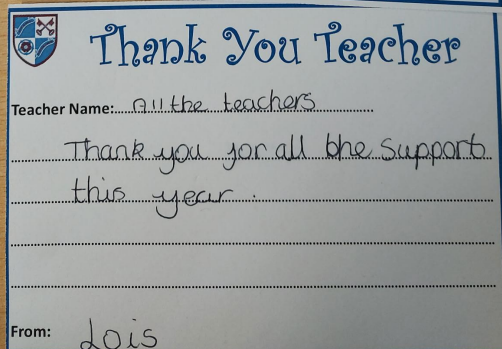 Thank You Teacher
Teacher Name: All the teachers
Thank you for all the support
this year.
From: Lois